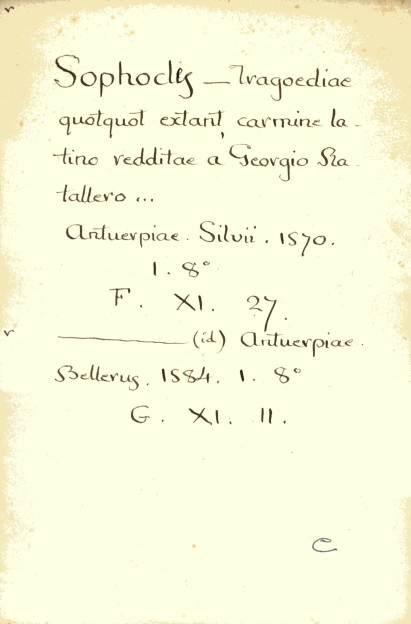 Sophoclis — Tragoediae
quotquot extant, carmine la-
tino redditae a Georgio Ra-
tallero ...
Antuerpiae. Silvii. 1570.
1. 8°
F. XI. 27.
——— (id) Antuerpiae.
Bellerus. 1584. 1. 8°
G. XI. 11.
C